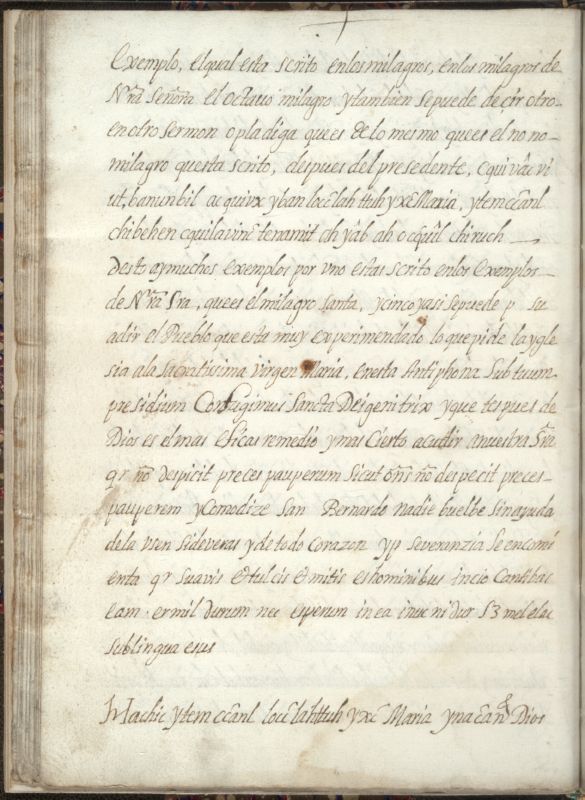 exemplo, el qual esta scrito enlos milagros, enlos milagros de
Nr̃a Señora el octauo milagro y tambien sepuede deçir otro
en otro sermon o pladiga quees de lo mesmo quees el no no-
milagro questa scrito, despues del presedente, cquivâc vi
ut, banunbil acquivx yban locc̃lahttuh yxc̃ Maria, ytem cc̃anl
chibehen cquilavinc̃ tenamit ah yâb ah ocqûil chiruch —
Desto ay muchos exemplos por vno estas scrito enlos exemplos-
de Nr̃a Sra, quees el milagro santa, ycinco yasi sepuede p su
adir el Pueblo que esta muy experimendado lo que pide la ygle
sia ala sacratissima virgen Maria, en esta Antiphona Sub tuum
presidium Confugimus Sancta Dei genitrix y que tespues de
Dios es el mas eficas remedio y mas cierto acudir anuestra Sr̃a
qr nõ despicit preces pauperum sicut onĩs nõ despecit preces-
pauperem y Comodize San Bernardo nadie buelbe sin ayuda
dela vsen sideveras y de todo corazon yp severanzia se encomi
enta qr suavis et tulcis et mitis es hominibus incio Cantibac
eam. ermil durum nec esperum in ea inue ni dur S3 mel elac
sub lingua eius
Machic ytem cc̃anl locc̃lahttuh yxc̃ Maria ynacc̃an Dios